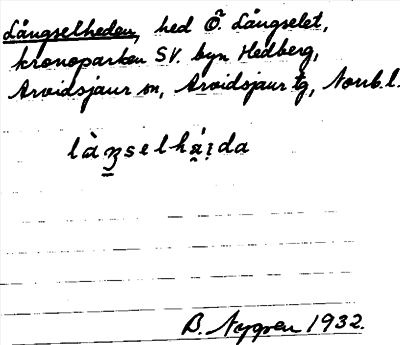 Långselheden, hed Ö. Långselet,
kronoparken SV. byn Hedberg,
Arvidsjaur sn, Arvidsjaur tg, Norrb. l.
B. Nygren 1932.